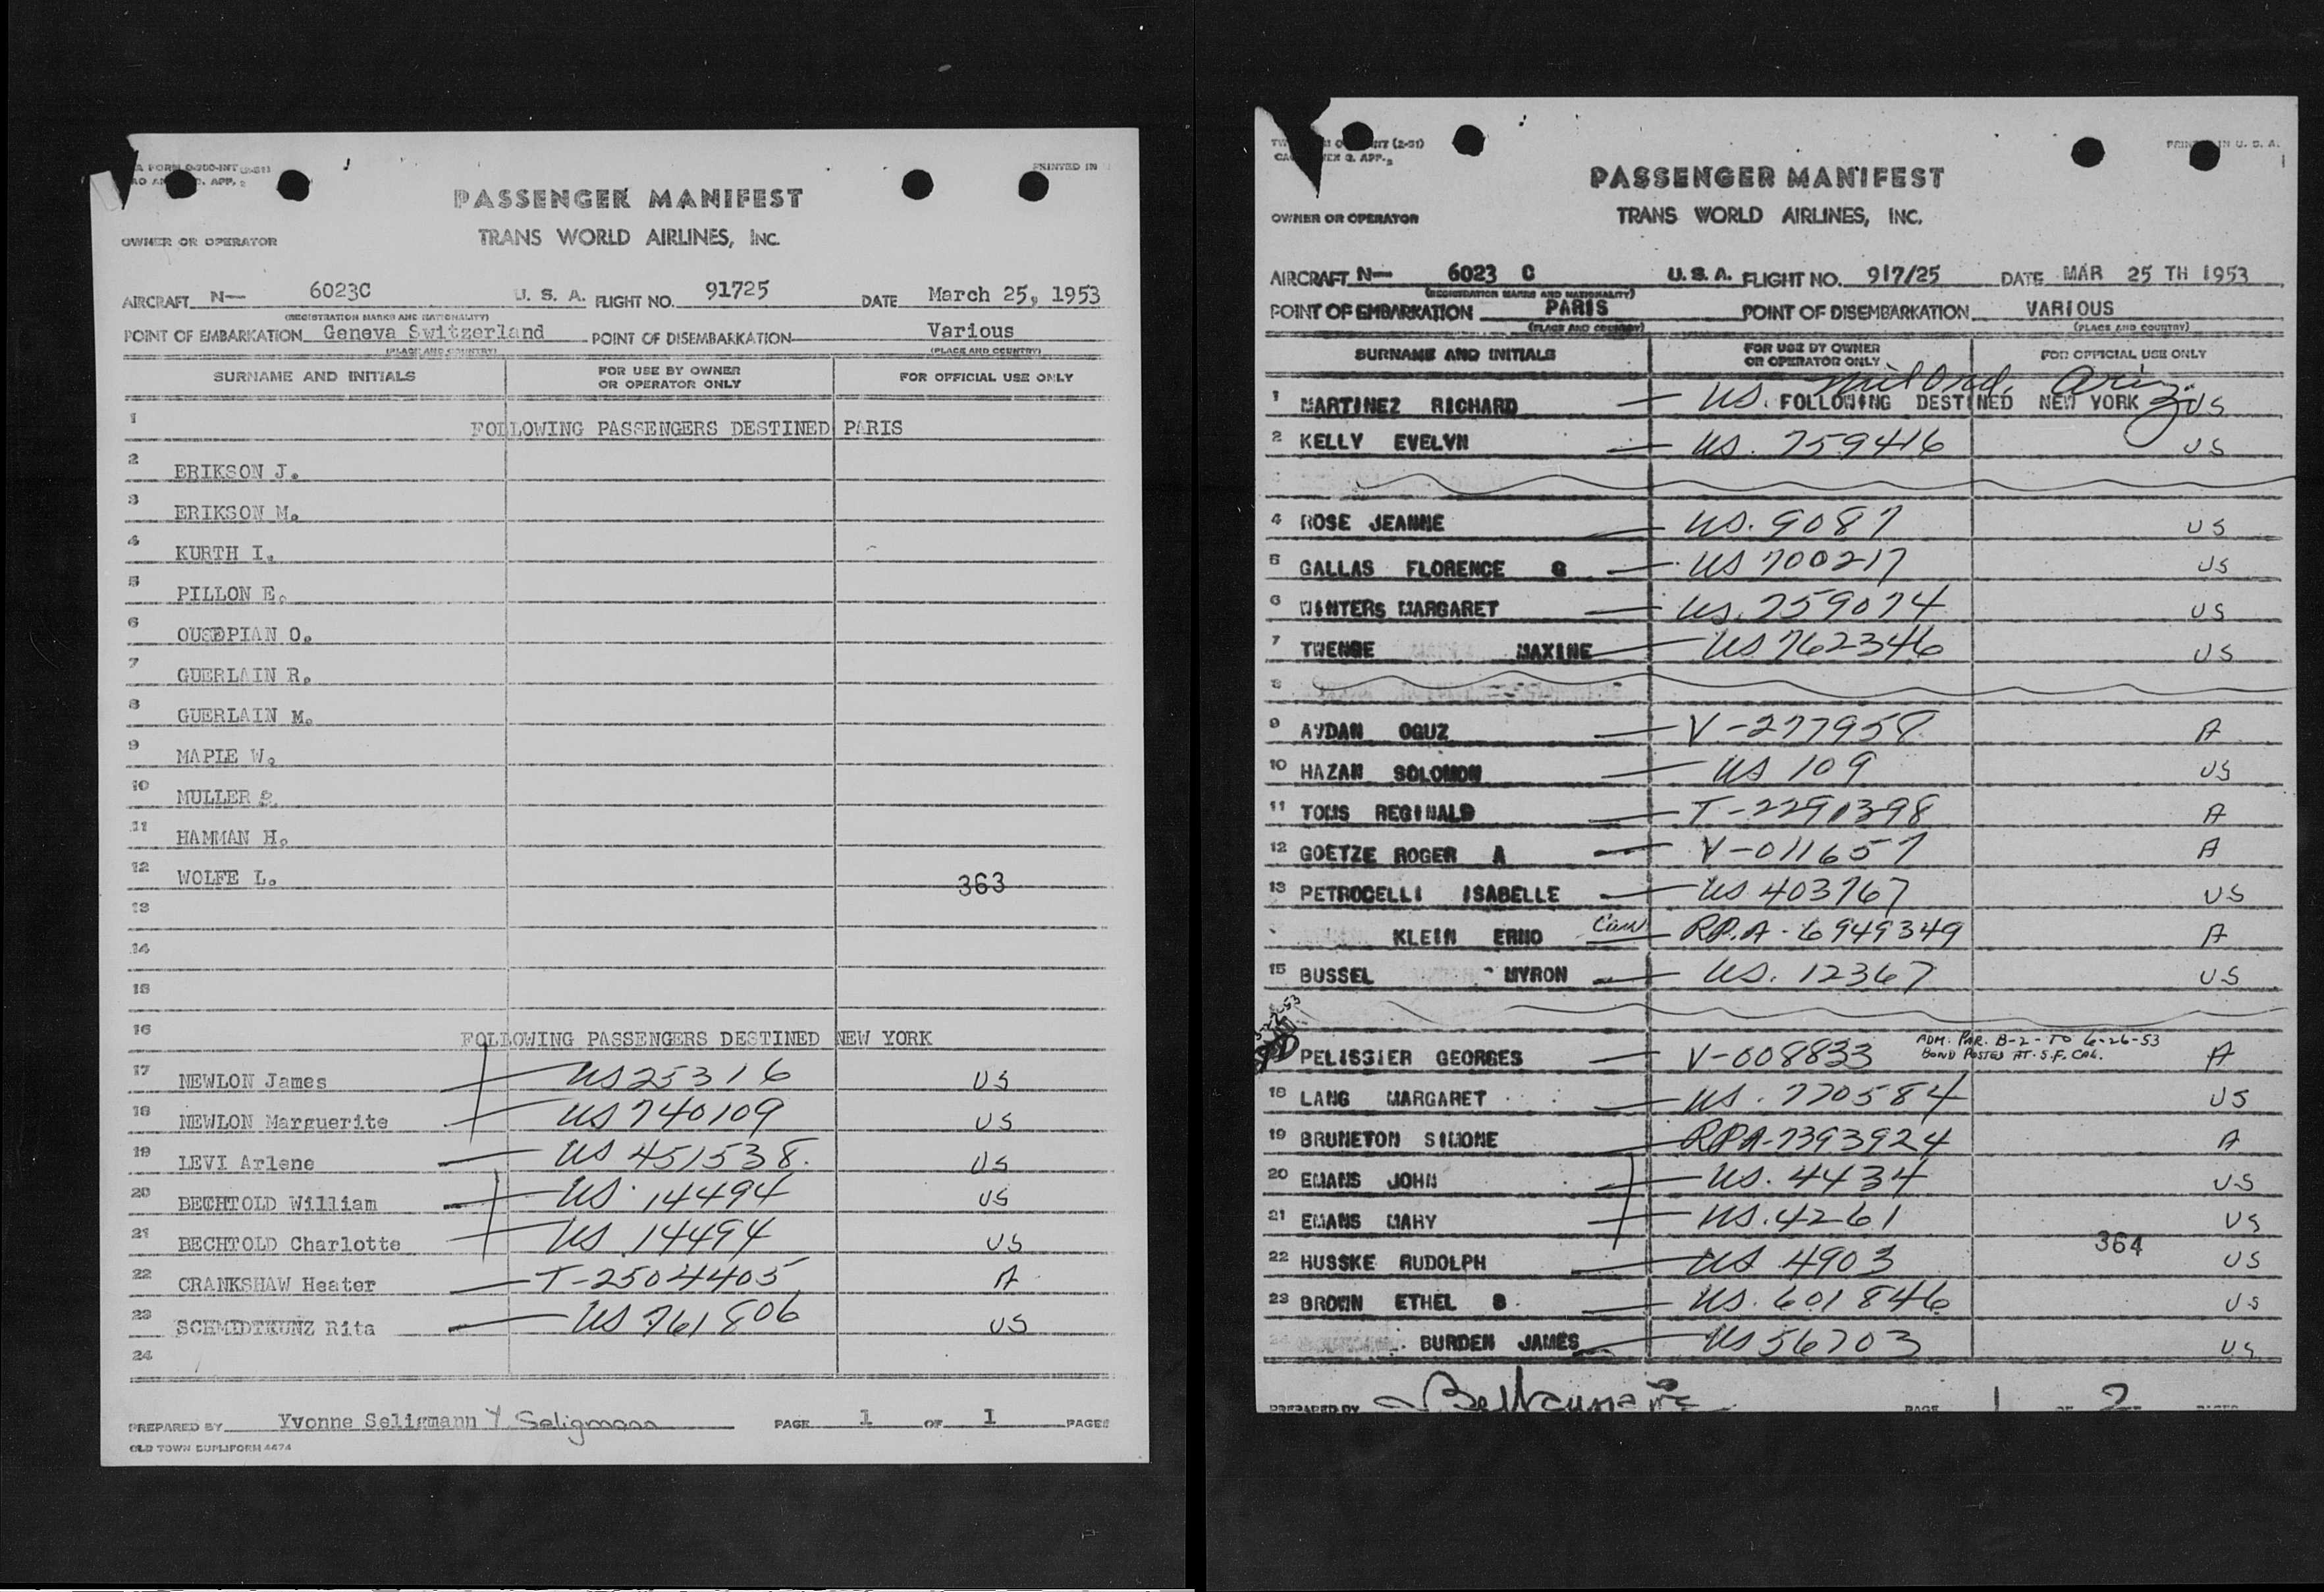 TWA FORM O-300-INT (2-51)
CAO ANNEX 9. APP. 2
PRINTED IN
PASSENGER MANIFEST
OWNER OR OPERATOR
TRANS WORLD AIRLINES, INC.
AIRCRAFT N— 6023C U. S. A. FLIGHT NO. 91725 DATE March 25, 1953
(REGISTRATION MARKS AND NATIONALITY)
POINT OF EMBARKATION Geneva Switzerland POINT OF DISEMBARKATION Various
(PLACE AND COUNTRY) (PLACE AND COUNTRY)
SURNAME AND INITIALS FOR USE BY OWNER OR OPERATOR ONLY FOR OFFICIAL USE ONLY
1 FOLLOWING PASSENGERS DESTINED PARIS
2 ERIKSON J.
3 ERIKSON M.
4 KURTH I.
5 PILLON E.
6 OUSEPIAN O.
7 GUERLAIN R.
8 GUERLAIN M.
9 MAPLE W.
10 MULLER
11 HAMMAN H.
12 WOLFE L. 363
13
14
15
16 FOLLOWING PASSENGERS DESTINED NEW YORK
17 NEWLON James US 25316 US
18 NEWLON Marguerite US 740109 US
19 LEVI Arlene US 451538. US
20 BECHTOLD William US 14494 US
21 BECHTOLD Charlotte US 14494 US
22 CRANKSHAW Heater T-2504405 A
23 SCHMIDTKUNZ Rita US 761806 US
24
PREPARED BY Yvonne Seligmann Y Seligmann PAGE 1 OF 1 PAGES
OLD TOWN DUPLIFORM 4474
(2-51)
PRINTED IN U. S. A.
PASSENGER MANIFEST
OWNER OR OPERATOR
TRANS WORLD AIRLINES, INC.
AIRCRAFT N— 6023 C U. S. A. FLIGHT NO. 917/25 DATE MAR 25 TH 1953
(REGISTRATION MARKS AND NATIONALITY)
POINT OF EMBARKATION PARIS POINT OF DISEMBARKATION VARIOUS
(PLACE AND COUNTRY) (PLACE AND COUNTRY)
SURNAME AND INITIALS FOR USE BY OWNER OR OPERATOR ONLY FOR OFFICIAL USE ONLY
Ariz.
1 MARTINEZ RICHARD US. FOLLOWING DESTINED NEW YORK US
2 KELLY EVELYN US. 759416 US
4 ROSE JEANNE US. 9087 US
5 GALLAS FLORENCE G US 700217 US
6 WINTERS MARGARET US. 759074 US
7 TWENGE MAXINE US 762346 US
8
9 AYDAN OGUZ V-277958 A
10 HAZAN SOLOMON US 109 US
11 TOMS REGINALD T-2291398 A
12 GOETZE ROGER A V-011657 A
13 PETROCELLI ISABELLE US 403767 US
KLEIN ERNO RP.A-6949349 A
15 BUSSEL MYRON US. 12367 US
PELISSIER GEORGES V-008833 ADM. PAR. B-2-TO 6-26-53 A
BOND POSTED AT S.F. CAL.
18 LANG MARGARET US. 770584 US
19 BRUNETON SIMONE RPA-7393924 A
20 EMANS JOHN US. 4434 US
21 EMANS MARY US. 4261 US
364
22 HUSSKE RUDOLPH US 4903 US
23 BROWN ETHEL B. US. 601846 US
BURDEN JAMES US 56703 US
PREPARED BY PAGE 1 OF 2 PAGES